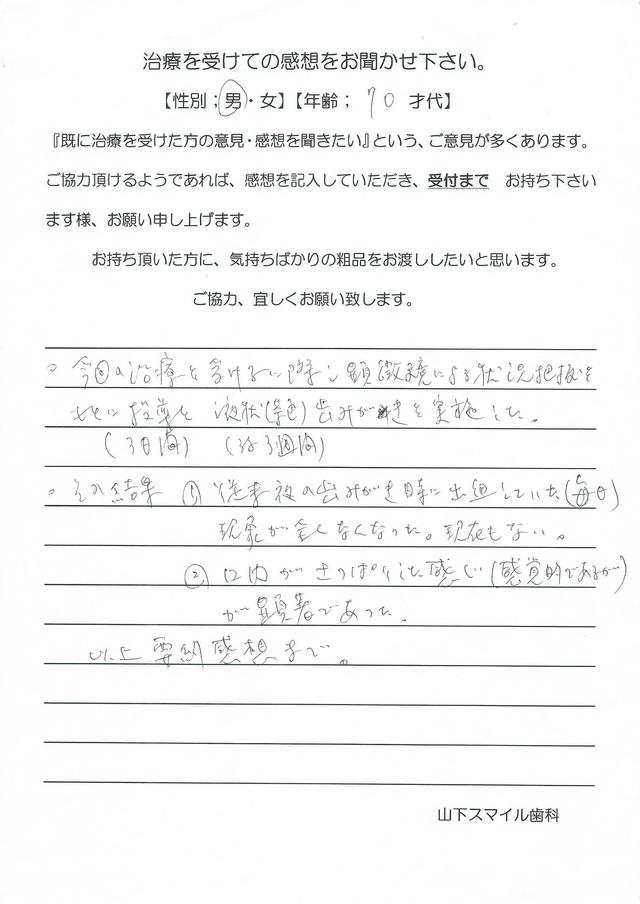 治療を受けての感想をお聞かせ下さい。
【性別；男・女】【年齢； 70 才代】
『既に治療を受けた方の意見・感想を聞きたい』という、ご意見が多くあります。
ご協力頂けるようであれば、感想を記入していただき、受付まで お持ち下さい
ます様、お願い申し上げます。
お持ち頂いた方に、気持ちばかりの粗品をお渡ししたいと思います。
ご協力、宜しくお願い致します。
○ 今回の治療を受けるに際し顕微鏡による状況把握を
もとに投薬と液状(茶色)歯みがきを実施した。
(3日間) (約3週間)
○ その結果 ① 従来夜の歯みがき時に出血していた(毎日)
現象が全くなくなった。現在もない。
② 口内がさっぱりした感じ(感覚的であるが)
が顕著であった。
以上要約感想まで。
山下スマイル歯科